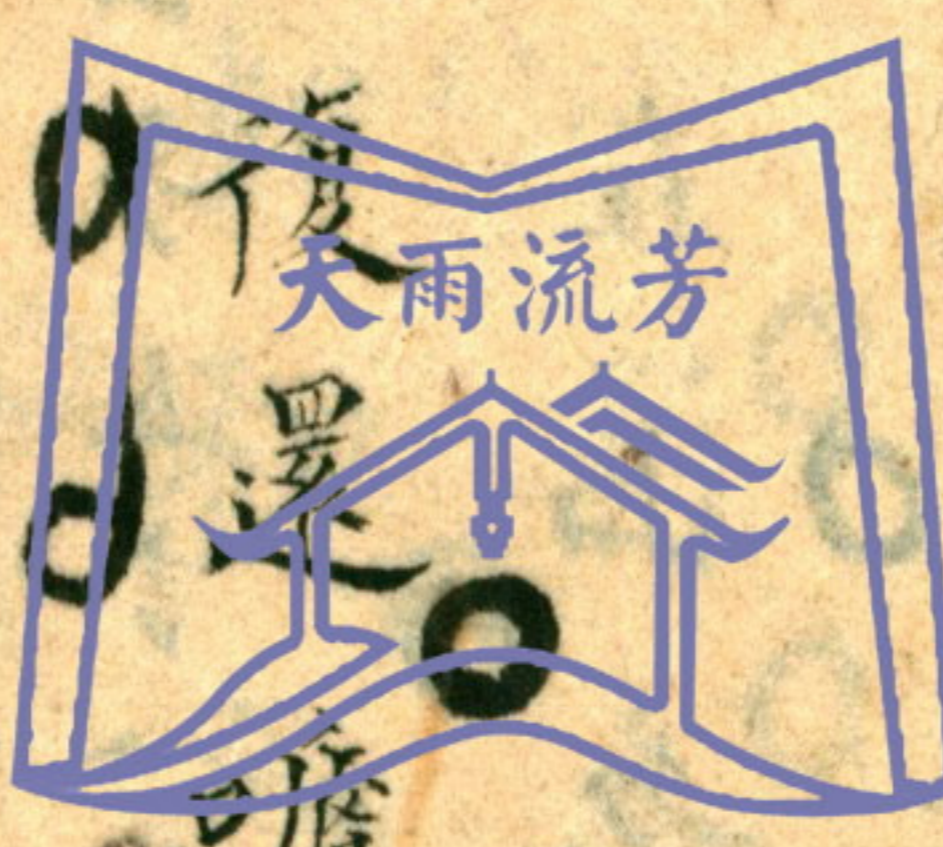 天雨流芳
復
還